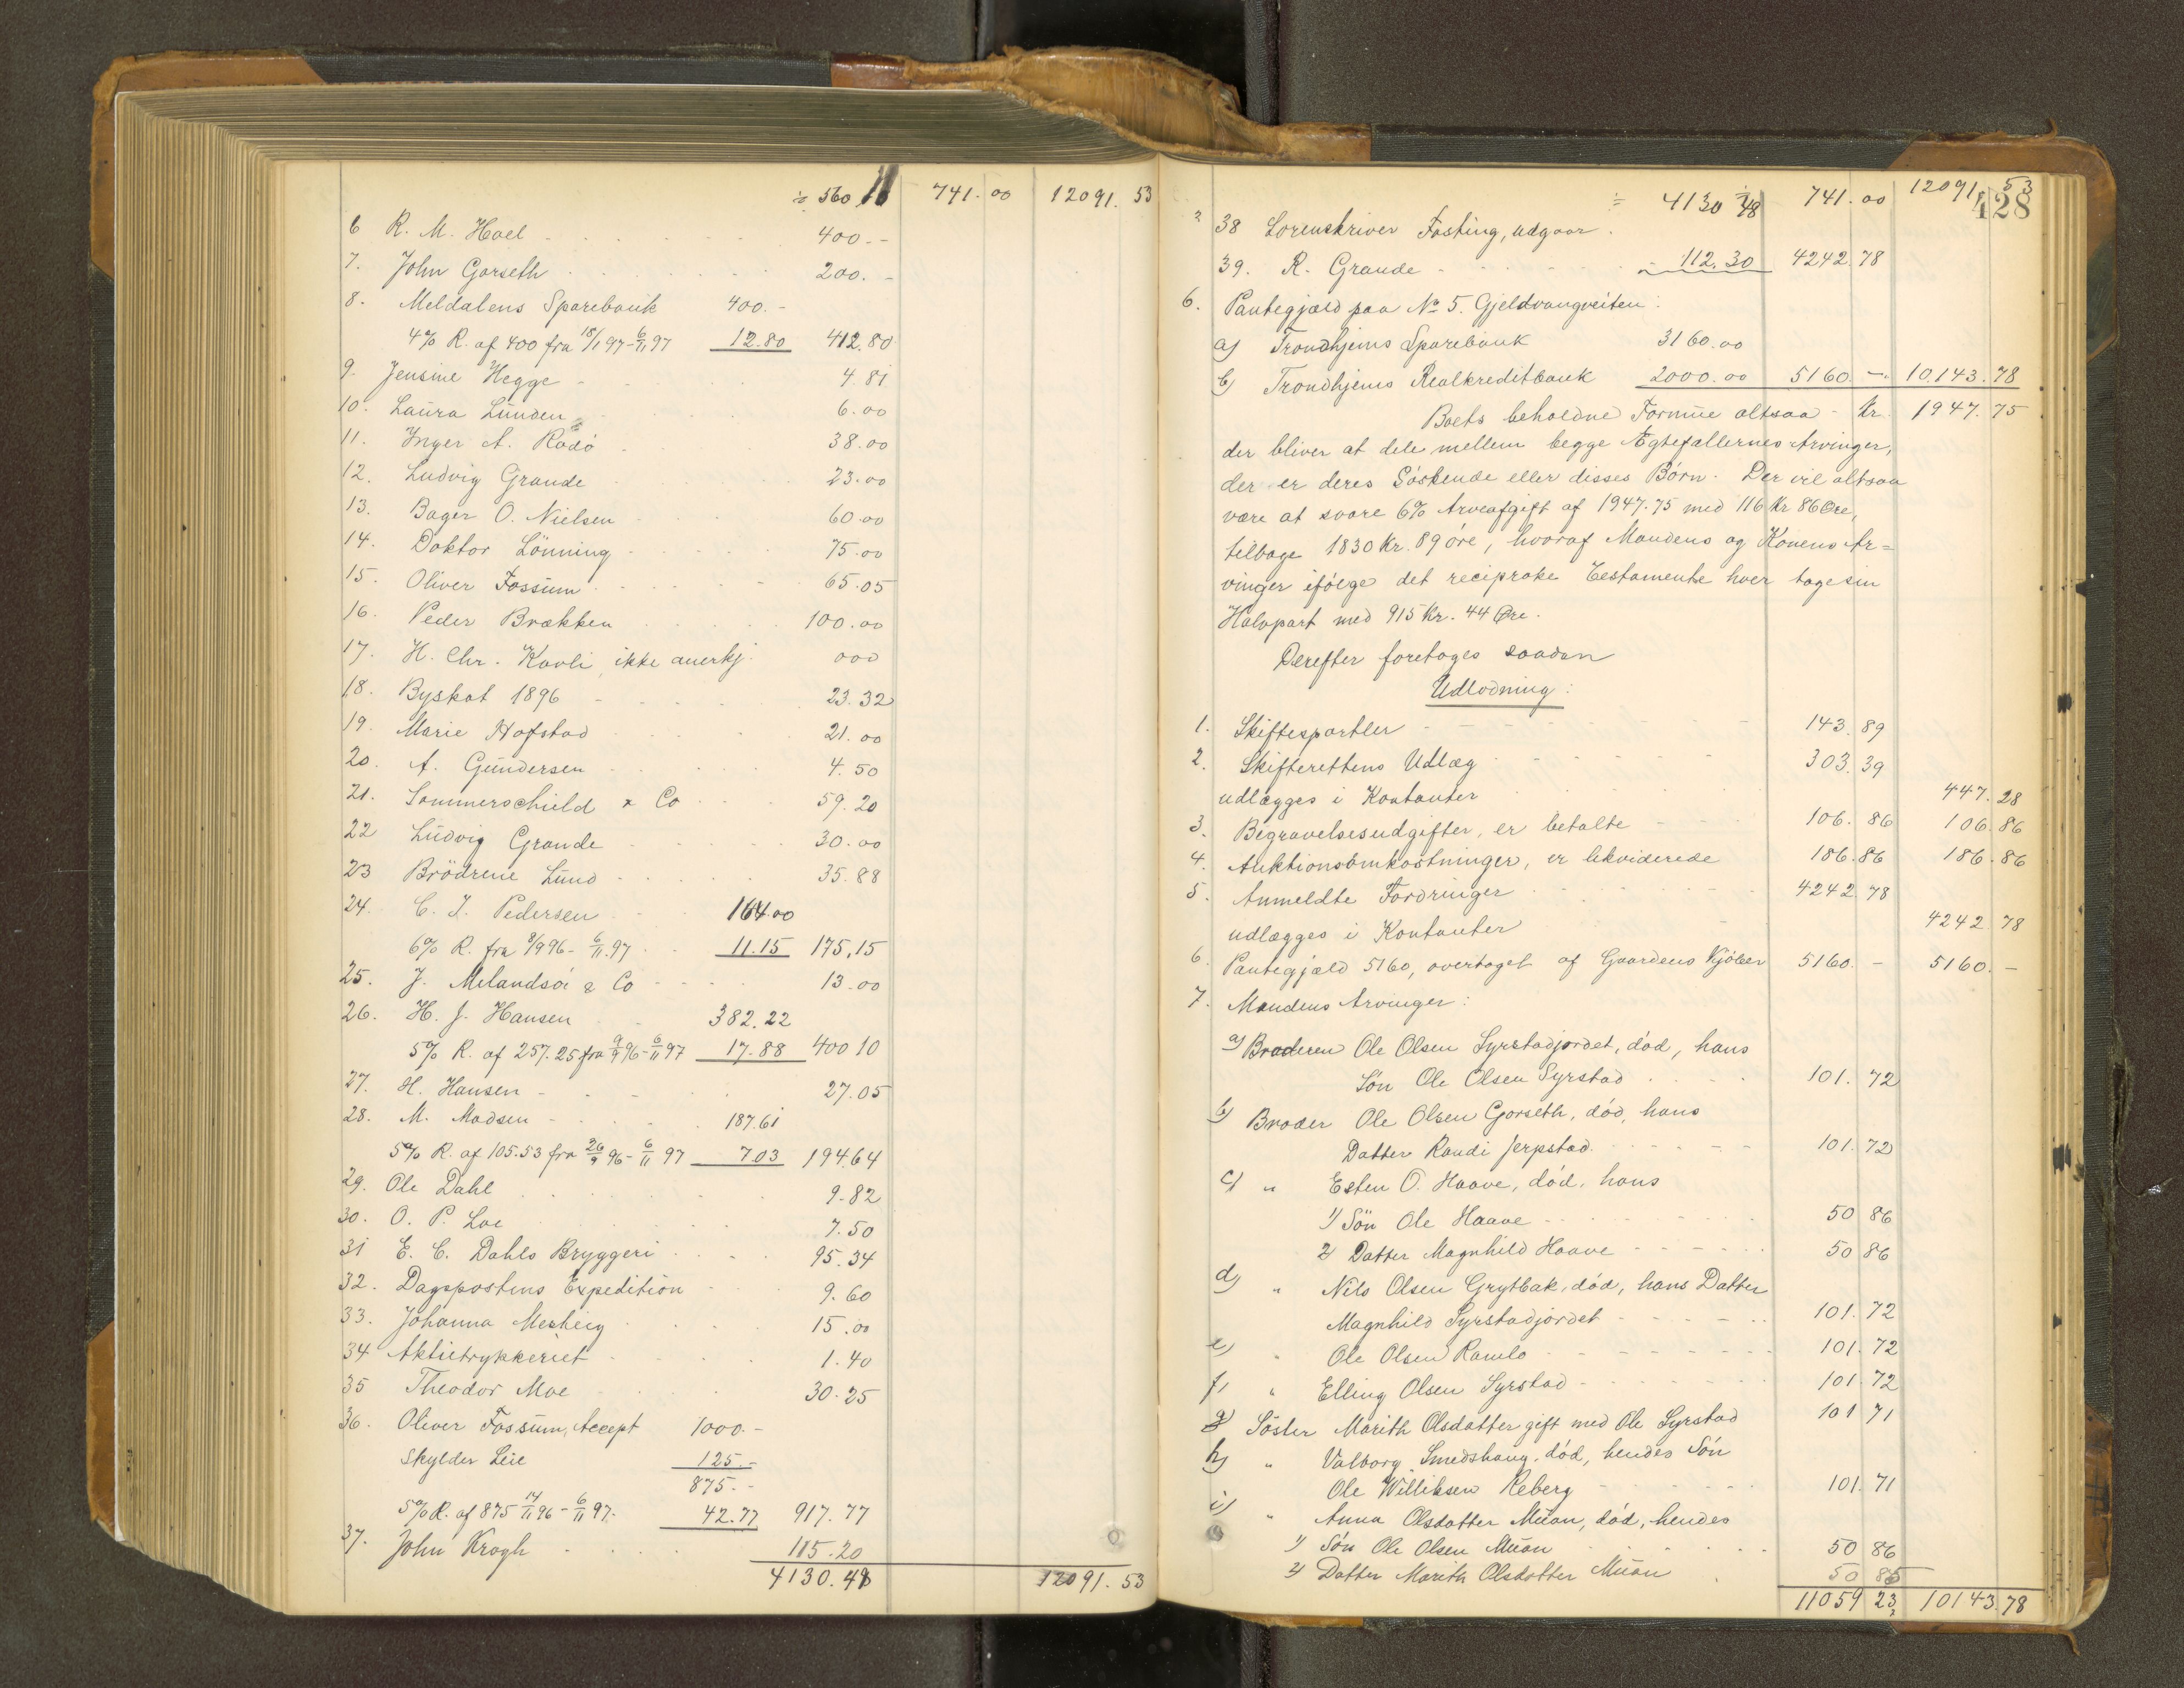 ÷ 560 10 741.00 12091.53
6 R. M. Hoel 400.-
7. John Gorseth 200.-
8. Meldalens Sparebank 400.-
4% R. af 400 fra 18/1 97-6/11 97 12.80 412.80
9. Jensine Hegge 4.81
10. Laura Lunden 6.00
11. Inger A. Rödö 38.00
12. Ludvig Grande 23.00
13. Bager O. Nielsen 60.00
14. Doktor Lönning 75.00
15. Oliver Fossum 65.05
16. Peder Brækken 100.00
17. H. Chr. Kavli, ikke anerkj. 000
18. Byskat 1896 23.32
19. Marie Hofstad 21.00
20. A. Gundersen 4.50
21. Sommerschield & Co 59.20
22 Ludvig Grande 30.00
23 Brödrene Lund 35.88
24. C. J. Pedersen 164.00
6% R. fra 8/9 96-6/11.97 11.15 175.15
25. J. Melandsö & Co 13.00
26. H. J. Hansen 382.22
5% R. af 257.25 fra 9/9 96-6/11 97 17.88 400 10
27. H. Hansen 27.05
28. M. Madsen 187.61
5% R. af 105.53 fra 26/9 96-6/11 97 7.03 194.64
29. Ole Dahl 9.82
30. O. P. Loe 7.50
31 E. C. Dahls Bryggeri 95.34
32. Dagspostens Expedition 9.60
33. Johanna 15.00
34 Aktietrykkeriet 1.40
35 Theodor Moe 30.25
36. Oliver Fossum, Accept 1000.-
Skylder Leie 125.-
875.-
5% R. af 875 14/11 96-6/11 97. 42.77 917.77
37. John Krogh 115.20
4130.48 12091.53
÷ 4130 48 741.00 12091.53
428
38 Sorenskriver Fasting, udgaar.
39. R. Grande 112.30 4242.78
6. Pantegjæld paa No 5. Gjeldvangveiten:
a) Trondhjems Sparebank 3160.00
b) Trondhjems Realkreditbank 2000.00 5160.- 10.143.78
Boets beholdne Formue altsaa - Kr. 1947.75
der bliver at dele mellem begge Ægtefællernes Arvinger,
der er deres Söskende eller disses Börn. Der vil altsaa
være at svare 6% Arveafgift af 1947.75 med 116 Kr 86 Øre,
tilbage 1830 Kr. 89 öre, hvoraf Mandens og Konens Ar=
vinger ifölge det reciproke Testamente hver tage sin
Halvpart med 915 Kr. 44 Øre.
Derefter foretages saadan
Udlodning:
1. Skiftesportler 143.89
2. Skifterettens Udlæg 303.39
udlægges i Kontanter 447.28
3. Begravelsesudgifter, er betalte 106.86 106.86
4. Auktionsomkostninger, er likviderede 186.86 186.86
5. Anmeldte Fordringer 4242.78
udlægges i Kontanter 4242.78
6. Pantegjæld 5160, overtaget af Gaardens Kjöber 5160.- 5160.-
7. Mandens Arvinger:
a) Broderen Ole Olsen Syrstadjordet, död, hans
Sön Ole Olsen Syrstad 101.72
b) Broder Ole Olsen Gorseth, död, hans
Datter Randi Jerpstad 101.72
c) " Esten O. Haave, död, hans
1) Sön Ole Haave 50 86
2) Datter Magnhild Haave 50 86
d) " Nils Olsen Grytbak, död, hans Datter
Magnhild Syrstadjordet 101.72
e) " Ole Olsen Ramlo 101.72
f) " Elling Olsen Syrstad 101 72
g) Söster Marith Olsdatter gift med Ole Syrstad 101 71
h) " Valborg Smedshaug, död, hendes Sön
Ole Williksen Reberg 101.71
i) " Anna Olsdatter Muan, död, hendes
1) Sön Ole Olsen Muan 50 86
2) Datter Marith Olsdatter Muan 50 85
11059 23 10143.78